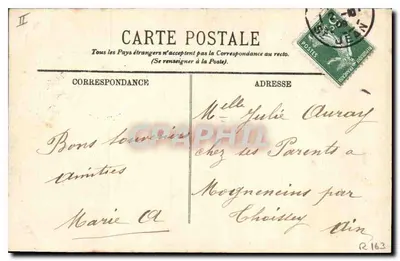 II
CARTE POSTALE
Tous les Pays étrangers n'acceptent pas la Correspondance au recto.
(Se renseigner à la Poste).
CORRESPONDANCE
ADRESSE
Bons Souvenirs
Amitiés
Marie A
Melle Julie Auray
chez ses Parents a
Mogneneins par
Thoissey
Ain
R 163